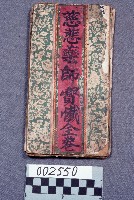 慈悲藥師寶懺全卷
002550